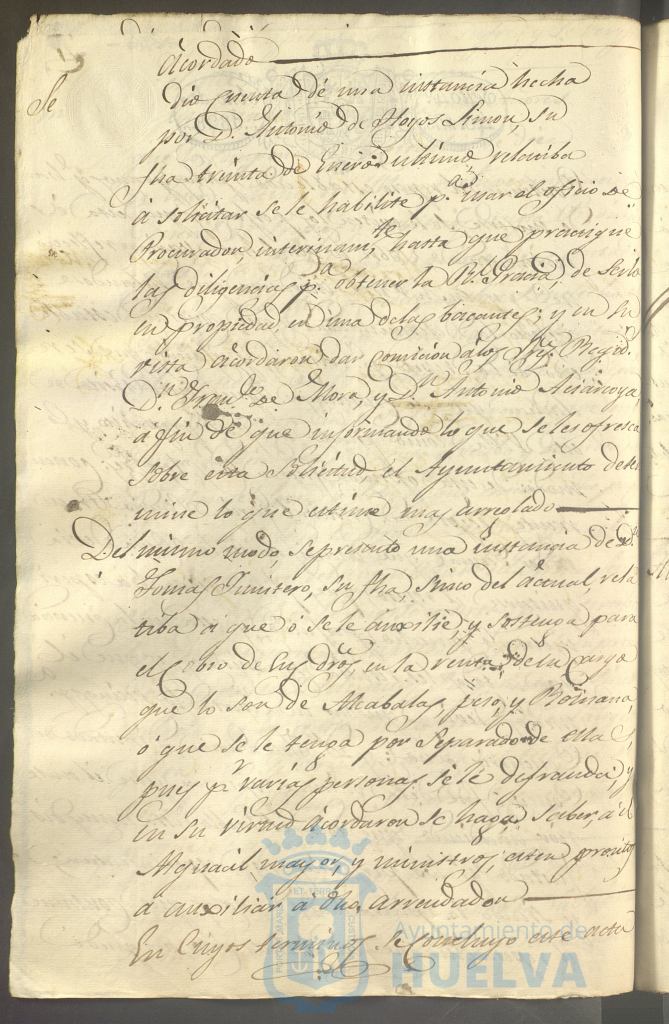 acordado
Se
dio cuenta de una instancia hecha
por D. Antonio de Hoyos Limon, su
fha treinta de Enero ultimo relatiba
á solicitar se le habilite p.a usar el oficio de
Procurador, interinam.te hasta que practique
las diligencias p.a obtener la R.l Gracia, de serlo
en propiedad, en una de las bacantes; y en su
vista acordaron dar comicion á los Sres. Regid.
D.n Fran.co de Mora, y D.n Antonio
á fin de que informando lo que se les ofresca
sobre esta solicitud, el Ayuntamiento deter
mine lo que estime mas arreglado
Del mismo modo, se presentó una instancia de D.
Tomas Quintero, su fha, sinco del actual, rela
tiba á que ó se le auxilie, y sostenga para
el cobro de sus dros, en la renta de su cargo
que lo son de Alcabalas, peso, y Romana,
ó que se le tenga por separado de ella
pues p.r varias personas se le defrauda, y
en su virtud acordaron se haga saber, á el
Alguacil mayor, y ministros, esten prontos
á auxiliar á dho Arrendador
En cuyos terminos se concluyó este acta
Ayuntamiento de
HUELVA